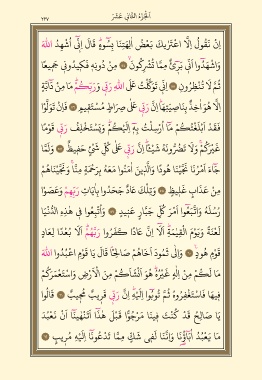 اَلْجُزْءُ الثَّانِي عَشَرَ
٢٢٧
اِنْ نَقُولُ اِلَّا اعْتَرٰيكَ بَعْضُ اٰلِهَتِنَا بِسُٓوءٍ قَالَ اِنّ۪ٓي اُشْهِدُ اللّٰهَ
وَاشْهَدُٓوا اَنّ۪ي بَر۪ٓيءٌ مِمَّا تُشْرِكُونَ ﴿٥٤﴾ مِنْ دُونِه۪ فَك۪يدُون۪ي جَم۪يعًا
ثُمَّ لَا تُنْظِرُونِ ﴿٥٥﴾ اِنّ۪ي تَوَكَّلْتُ عَلَى اللّٰهِ رَبّ۪ي وَرَبِّكُمْ مَا مِنْ دَٓابَّةٍ
اِلَّا هُوَ اٰخِذٌ بِنَاصِيَتِهَا اِنَّ رَبّ۪ي عَلٰى صِرَاطٍ مُسْتَق۪يمٍ ﴿٥٦﴾ فَاِنْ تَوَلَّوْا
فَقَدْ اَبْلَغْتُكُمْ مَٓا اُرْسِلْتُ بِه۪ٓ اِلَيْكُمْ وَيَسْتَخْلِفُ رَبّ۪ي قَوْمًا
غَيْرَكُمْ وَلَا تَضُرُّونَهُ شَيْـًٔا اِنَّ رَبّ۪ي عَلٰى كُلِّ شَيْءٍ حَف۪يظٌ ﴿٥٧﴾ وَلَمَّا
جَٓاءَ اَمْرُنَا نَجَّيْنَا هُودًا وَالَّذ۪ينَ اٰمَنُوا مَعَهُ بِرَحْمَةٍ مِنَّا وَنَجَّيْنَاهُمْ
مِنْ عَذَابٍ غَل۪يظٍ ﴿٥٨﴾ وَتِلْكَ عَادٌ جَحَدُوا بِاٰيَاتِ رَبِّهِمْ وَعَصَوْا
رُسُلَهُ وَاتَّبَعُٓوا اَمْرَ كُلِّ جَبَّارٍ عَن۪يدٍ ﴿٥٩﴾ وَاُتْبِعُوا ف۪ي هٰذِهِ الدُّنْيَا
لَعْنَةً وَيَوْمَ الْقِيٰمَةِ اَلَٓا اِنَّ عَادًا كَفَرُوا رَبَّهُمْ اَلَا بُعْدًا لِعَادٍ
قَوْمِ هُودٍ ﴿٦٠﴾ وَاِلٰى ثَمُودَ اَخَاهُمْ صَالِحًا قَالَ يَا قَوْمِ اعْبُدُوا اللّٰهَ
مَا لَكُمْ مِنْ اِلٰهٍ غَيْرُهُ هُوَ اَنْشَاَكُمْ مِنَ الْاَرْضِ وَاسْتَعْمَرَكُمْ
ف۪يهَا فَاسْتَغْفِرُوهُ ثُمَّ تُوبُٓوا اِلَيْهِ اِنَّ رَبّ۪ي قَر۪يبٌ مُج۪يبٌ ﴿٦١﴾ قَالُوا
يَا صَالِحُ قَدْ كُنْتَ ف۪ينَا مَرْجُوًّا قَبْلَ هٰذَٓا اَتَنْهٰينَٓا اَنْ نَعْبُدَ
مَا يَعْبُدُ اٰبَٓاؤُ۬نَا وَاِنَّنَا لَف۪ي شَكٍّ مِمَّا تَدْعُونَٓا اِلَيْهِ مُر۪يبٍ ﴿٦٢﴾